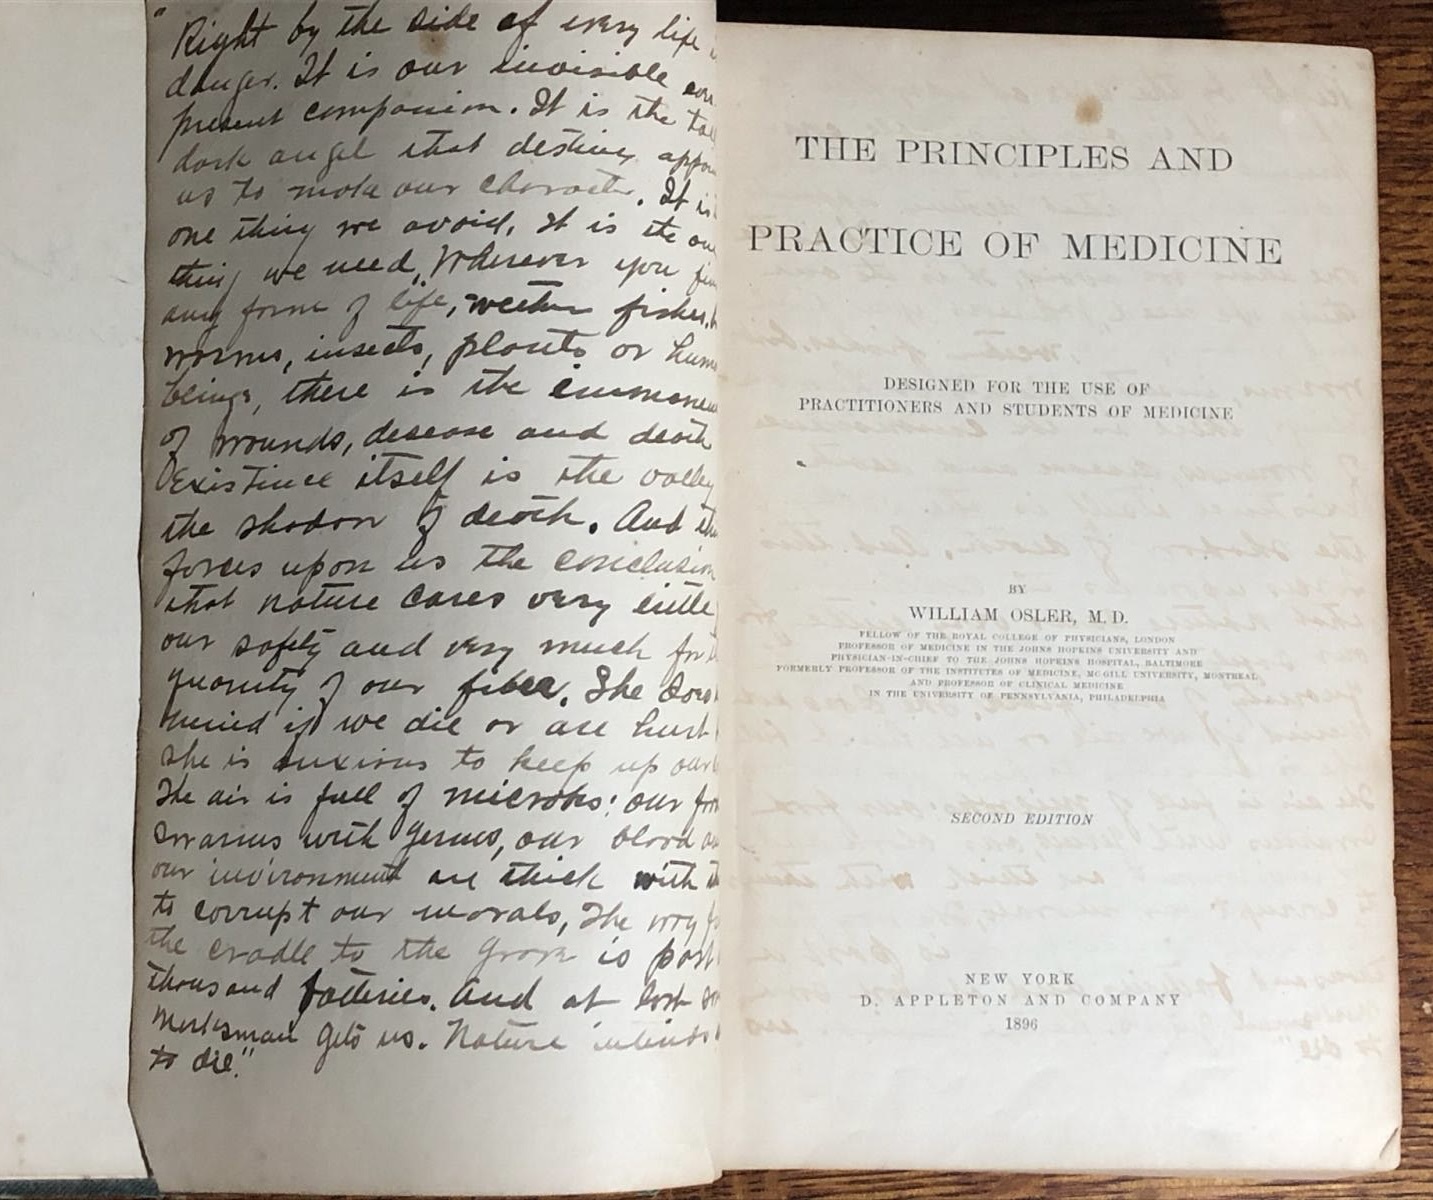 "Right by the side of every life
danger. It is our invisible
present companion. It is the
dark angel that destiny
us to make our character. It is
one thing we avoid, It is the
thing we need, Wherever you
any form of life, fishes,
worms, insects, plants or
beings, there is the
of wounds, desease and death
Existince itself is the valley
the shadow of death. And
forces upon us the conclusion
that nature cares very little
our safety and very much for
of our fiber. She
if we die or are hurt
she is anxious to keep up our
The air is full of microbs: our
swarms with germs, our blood
our invironment are thick with
to corrupt our morals, The way
the cradle to the grave is past
thousand batteries. And at last
Marksman gets us. Nature intends
to die."
THE PRINCIPLES AND
PRACTICE OF MEDICINE
DESIGNED FOR THE USE OF
PRACTITIONERS AND STUDENTS OF MEDICINE
BY
WILLIAM OSLER, M. D.
FELLOW OF THE ROYAL COLLEGE OF PHYSICIANS, LONDON
PROFESSOR OF MEDICINE IN THE JOHNS HOPKINS UNIVERSITY AND
PHYSICIAN-IN-CHIEF TO THE JOHNS HOPKINS HOSPITAL, BALTIMORE
FORMERLY PROFESSOR OF THE INSTITUTES OF MEDICINE, MCGILL UNIVERSITY, MONTREAL
AND PROFESSOR OF CLINICAL MEDICINE
IN THE UNIVERSITY OF PENNSYLVANIA, PHILADELPHIA
SECOND EDITION
NEW YORK
D. APPLETON AND COMPANY
1896